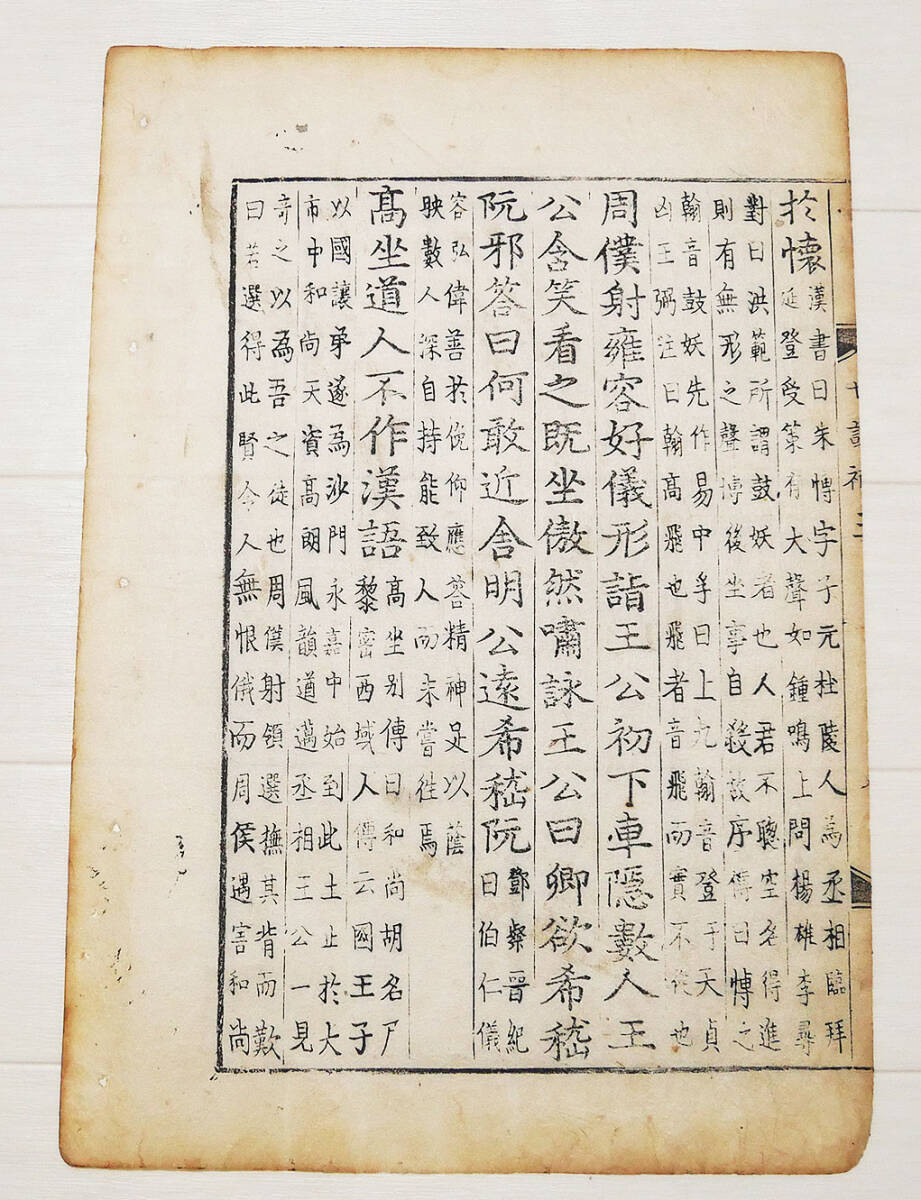 於懷漢書曰朱愽字子元杜陵人為丞相臨拜
延登受策有大聲如鍾鳴上問楊雄李尋
對曰洪範所謂鼓妖者也人君不聰空名得進
則有無形之聲愽後坐事自殺故序傳曰愽之
翰音鼓妖先作易中孚曰上九翰音登于天貞
凶王弼注曰翰高飛也飛者音飛而實不從也
周僕射雍容好儀形詣王公初下車隱數人王
公含笑看之既坐傲然嘯詠王公曰卿欲希嵇
阮邪荅曰何敢近舍明公遠希嵇阮鄧粲晉紀
曰伯仁儀
容弘偉善於俛仰應荅精神足以蔭
映數人深自持能致人而未嘗徃焉
高坐道人不作漢語高坐別傳曰和尚胡名尸
黎密西域人傳云國王子
以國讓弟遂為沙門永嘉中始到此土止於大
市中和尚天資高朗風韻遒邁丞相王公一見
奇之以為吾之徒也周僕射領選撫其背而歎
曰若選得此賢令人無恨俄而周侯遇害和尚